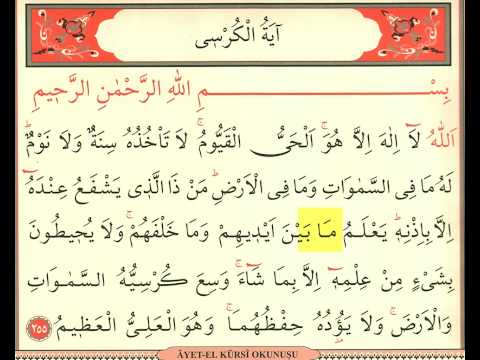 اٰيَةُ الْكُرْسٖى
بِسْمِ اللّٰهِ الرَّحْمٰنِ الرَّحٖيمِ
اَللّٰهُ لَٓا اِلٰهَ اِلَّا هُوَۚ اَلْحَىُّ الْقَيُّومُۚ لَا تَأْخُذُهُ سِنَةٌ وَلَا نَوْمٌؕ
لَهُ مَا فِى السَّمٰوَاتِ وَمَا فِى الْاَرْضِؕ مَنْ ذَا الَّذٖى يَشْفَعُ عِنْدَهُٓ
اِلَّا بِاِذْنِهٖؕ يَعْلَمُ مَا بَيْنَ اَيْدٖيهِمْ وَمَا خَلْفَهُمْۚ وَلَا يُحٖيطُونَ
بِشَىْءٍ مِنْ عِلْمِهٖٓ اِلَّا بِمَا شَٓاءَۚ وَسِعَ كُرْسِيُّهُ السَّمٰوَاتِ
وَالْاَرْضَۚ وَلَا يَؤُدُهُ حِفْظُهُمَاۚ وَهُوَ الْعَلِىُّ الْعَظٖيمُ
٢٥٥
ÂYET-EL KÜRSÎ OKUNUŞU